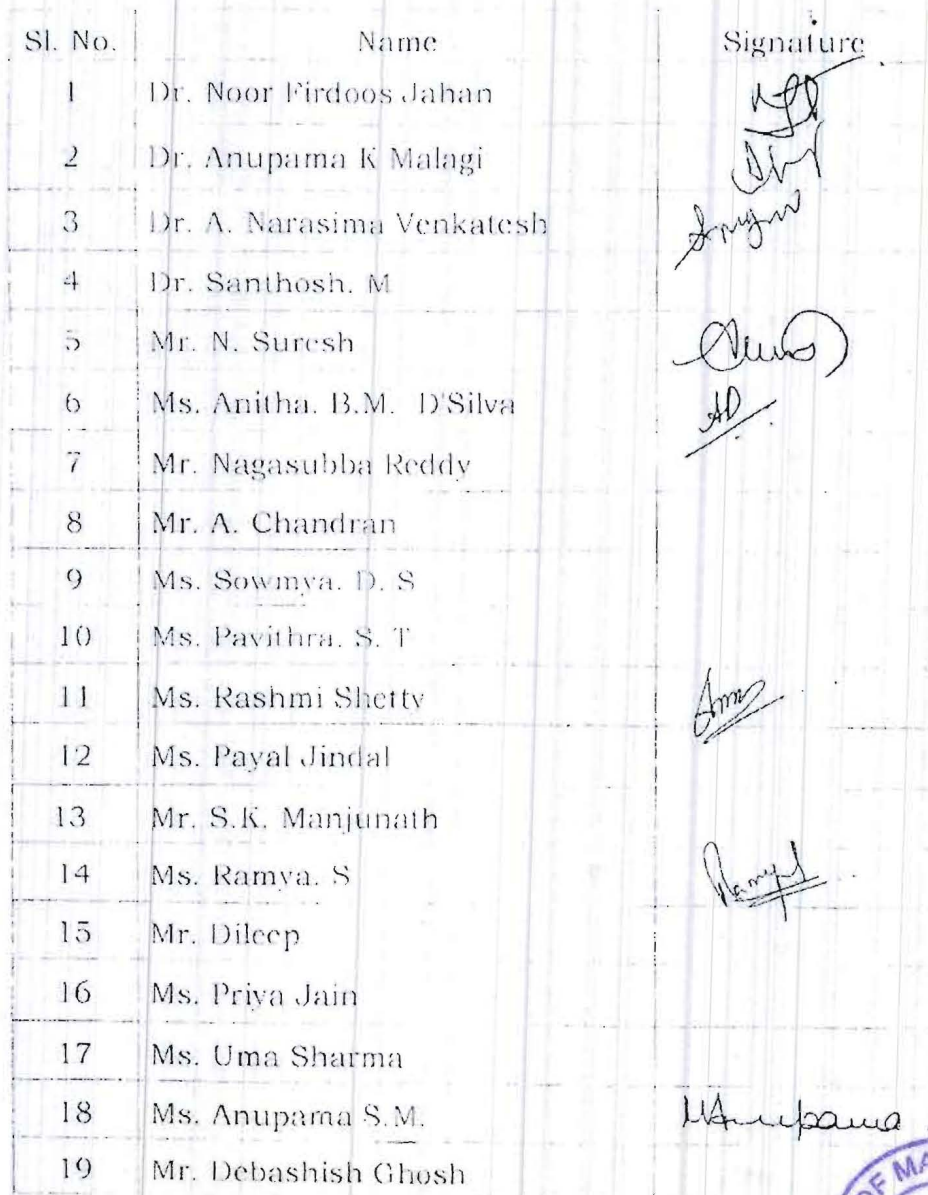 Sl. No. Name Signature
1 Dr. Noor Firdoos Jahan
2 Dr. Anupama K Malagi
3 Dr. A. Narasima Venkatesh
4 Dr. Santhosh. M
5 Mr. N. Suresh
6 Ms. Anitha. B.M. D'Silva AD
7 Mr. Nagasubba Reddy
8 Mr. A. Chandran
9 Ms. Sowmya. D. S
10 Ms. Pavithra. S. T
11 Ms. Rashmi Shetty
12 Ms. Payal Jindal
13 Mr. S.K. Manjunath
14 Ms. Ramya. S RamyaS
15 Mr. Dileep
16 Ms. Priya Jain
17 Ms. Uma Sharma
18 Ms. Anupama S.M. Anupama
19 Mr. Debashish Ghosh
OF MA